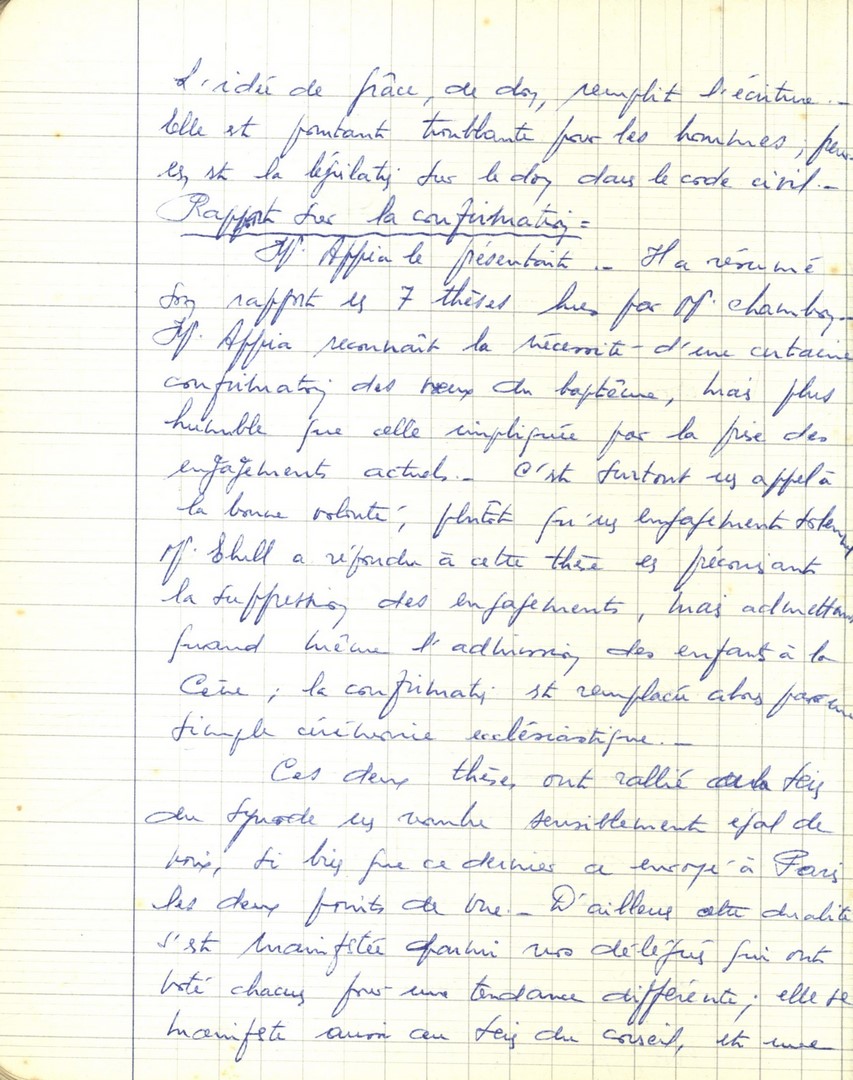 L'idée de grâce, de don, remplit l'écriture.-
Elle est pourtant troublante pour les hommes ; preuve
en est la législation sur le don dans le code civil.-
Rapport sur la confirmation =
M. Appia le présentait.- Il a résumé
son rapport en 7 thèses lues par M. Chambon.-
M. Appia reconnaît la nécessité d'une certaine
confirmation des vœux du baptême, mais plus
humble que celle impliquée par la prise des
engagements actuels.- C'est surtout un appel à
la bonne volonté, plutôt qu'un engagement solennel
M. Ehell a répondu à cette thèse en préconisant
la suppression des engagements, mais admettant
quand même l'admission des enfants à la
Cène ; la confirmation est remplacée alors par une
simple cérémonie ecclésiastique.-
Ces deux thèses ont rallié au sein
du Synode un nombre sensiblement égal de
voix, si bien que ce dernier a envoyé à Paris
les deux points de vue.- D'ailleurs cette dualité
s'est manifestée parmi nos délégués qui ont
voté chacun pour une tendance différente ; elle se
manifeste aussi au sein du conseil, et une